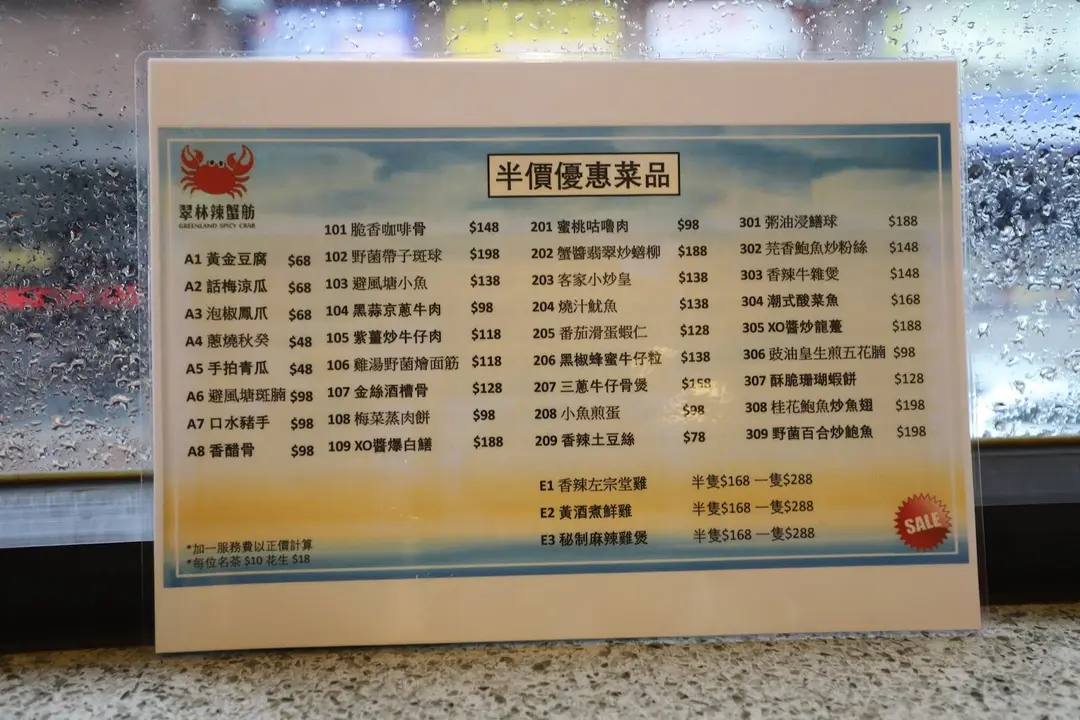 半價優惠菜品
翠林辣蟹舫
GREENLAND SPICY CRAB
A1 黃金豆腐 $68
A2 話梅涼瓜 $68
A3 泡椒鳳爪 $68
A4 蔥燒秋癸 $48
A5 手拍青瓜 $48
A6 避風塘斑腩 $98
A7 口水豬手 $98
A8 香醋骨 $98
101 脆香咖啡骨 $148
102 野菌帶子斑球 $198
103 避風塘小魚 $138
104 黑蒜京蔥牛肉 $98
105 紫薑炒牛仔肉 $118
106 雞湯野菌燴面筋 $118
107 金絲酒槽骨 $128
108 梅菜蒸肉餅 $98
109 XO醬爆白鱔 $188
201 蜜桃咕嚕肉 $98
202 蟹醬翡翠炒鱔柳 $188
203 客家小炒皇 $138
204 燒汁魷魚 $138
205 番茄滑蛋蝦仁 $128
206 黑椒蜂蜜牛仔粒 $138
207 三蔥牛仔骨煲 $158
208 小魚煎蛋 $98
209 香辣土豆絲 $78
301 粥油浸鱔球 $188
302 芫香鮑魚炒粉絲 $148
303 香辣牛雜煲 $148
304 潮式酸菜魚 $168
305 XO醬炒龍躉 $188
306 豉油皇生煎五花腩 $98
307 酥脆珊瑚蝦餅 $128
308 桂花鮑魚炒魚翅 $198
309 野菌百合炒鮑魚 $198
E1 香辣左宗堂雞 半隻$168 一隻$288
E2 黃酒煮鮮雞 半隻$168 一隻$288
E3 秘制麻辣雞煲 半隻$168 一隻$288
SALE
*加一服務費以正價計算
*每位名茶 $10 花生 $18